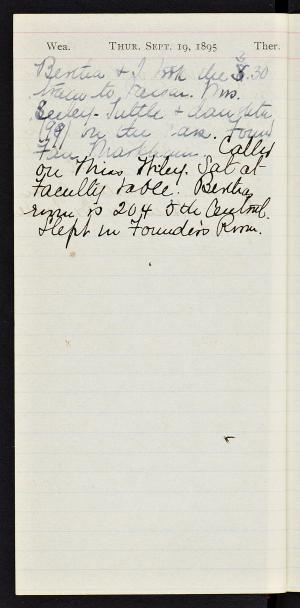 Wea. THUR. SEPT. 19, 1895 Ther.
Bertha & I took the 8.30
train to Vassar. Mrs.
Seeley-Tuttle & daughter
('99) on the cars. Found
Fan Markham. Called
on Miss Wiley. Sat at
Faculty table. Bertha
room is 204 5th Central.
Slept in Founder's Room.